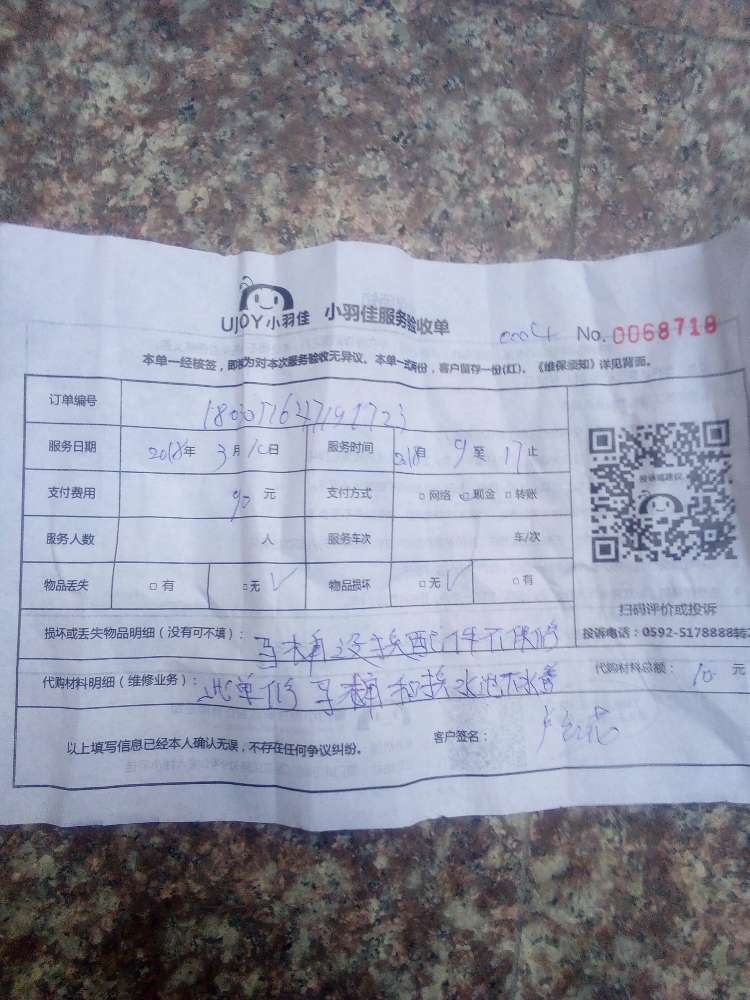 UJOY小羽佳 小羽佳服务验收单 No.0068718
本单一经核签，即视为对本次服务验收无异议。本单一式两份，客户留存一份(红)。《维保须知》详见背面。
订单编号
服务日期 2018年 3月 日 服务时间 自 9至 17止
支付费用 90元 支付方式 □网络 □现金 □转账
服务人数 人 服务车次 车/次
物品丢失 □有 □无 ✓ 物品损坏 □无 ✓ □有
投诉或建议
扫码评价或投诉
投诉电话：0592-5178888转
损坏或丢失物品明细（没有可不填）：马桶没换配件不保修
代购材料明细（维修业务）：此单修马桶和换水池下水管 代购材料总额：10元
以上填写信息已经本人确认无误，不存在任何争议纠纷。 客户签名：